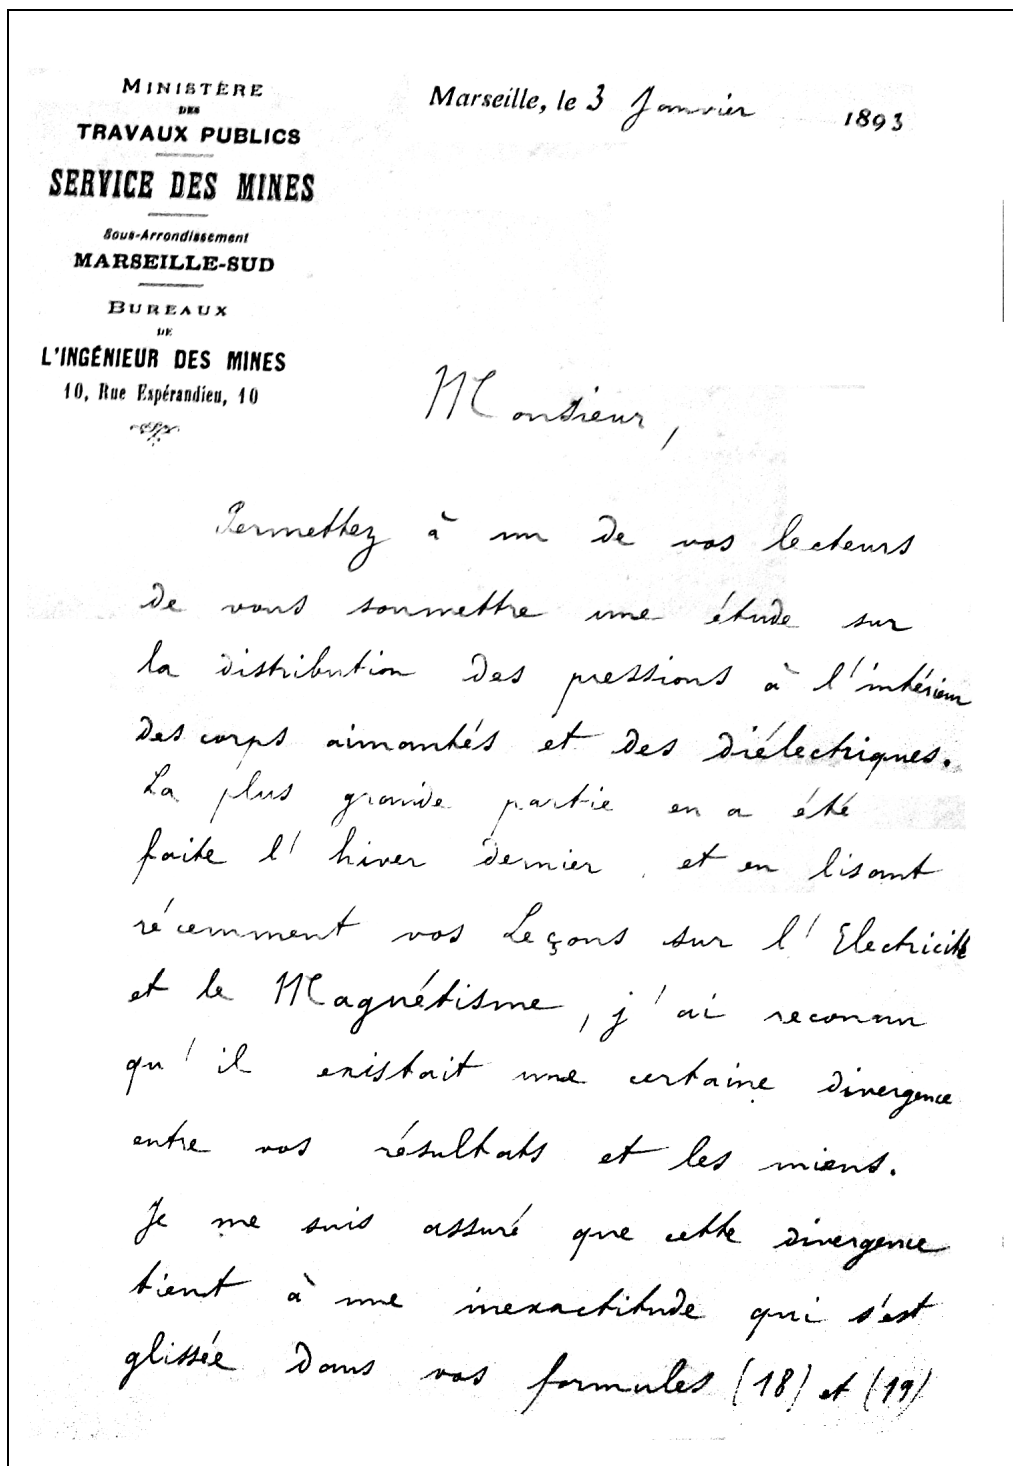 MINISTÈRE
DES
TRAVAUX PUBLICS
SERVICE DES MINES
Sous-Arrondissement
MARSEILLE-SUD
BUREAUX
DE
L'INGÉNIEUR DES MINES
10, Rue Espérandieu, 10
Marseille, le 3 Janvier 1893
Monsieur,
Permettez à un de vos lecteurs
de vous soumettre une étude sur
la distribution des pressions à l'intérieur
des corps aimantés et des diélectriques.
La plus grande partie en a été
faite l'hiver dernier, et en lisant
récemment vos Leçons sur l'Electricité
et le Magnétisme, j'ai reconnu
qu'il existait une certaine divergence
entre vos résultats et les miens.
Je me suis assuré que cette divergence
tient à une inexactitude qui s'est
glissée dans vos formules (18) et (19)